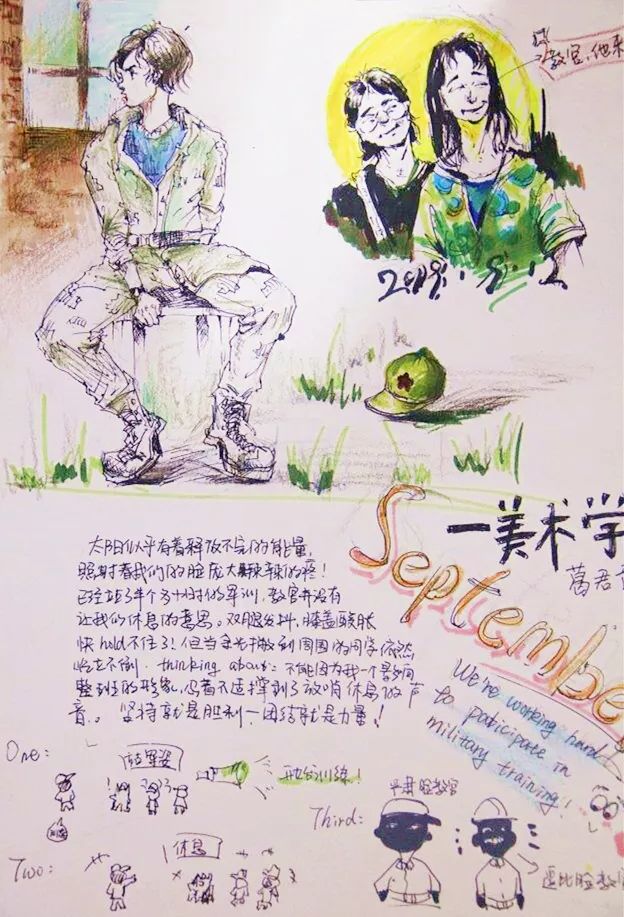 教官,他来
2019.9.12
一美术学
葛君
September
We're working hard
to paticipate in
military training!
太阳似乎有着释放不完的能量,
照射着我们的脸庞大辣辣的疼!
已经站了半个多小时的军训,教官并没有
让我们休息的意思。双腿发抖,膝盖酸胀
快hold不住了!但当余光扫到周围的同学依然
屹立不倒.thinking about:不能因为我一个影响
整班的形象,咬着牙撑到了放哨休息的声
音。坚持就是胜利—团结就是力量!
One:
站军姿
开始训练!
Two:
休息
Third:
平井脸教官
逗比脸教官